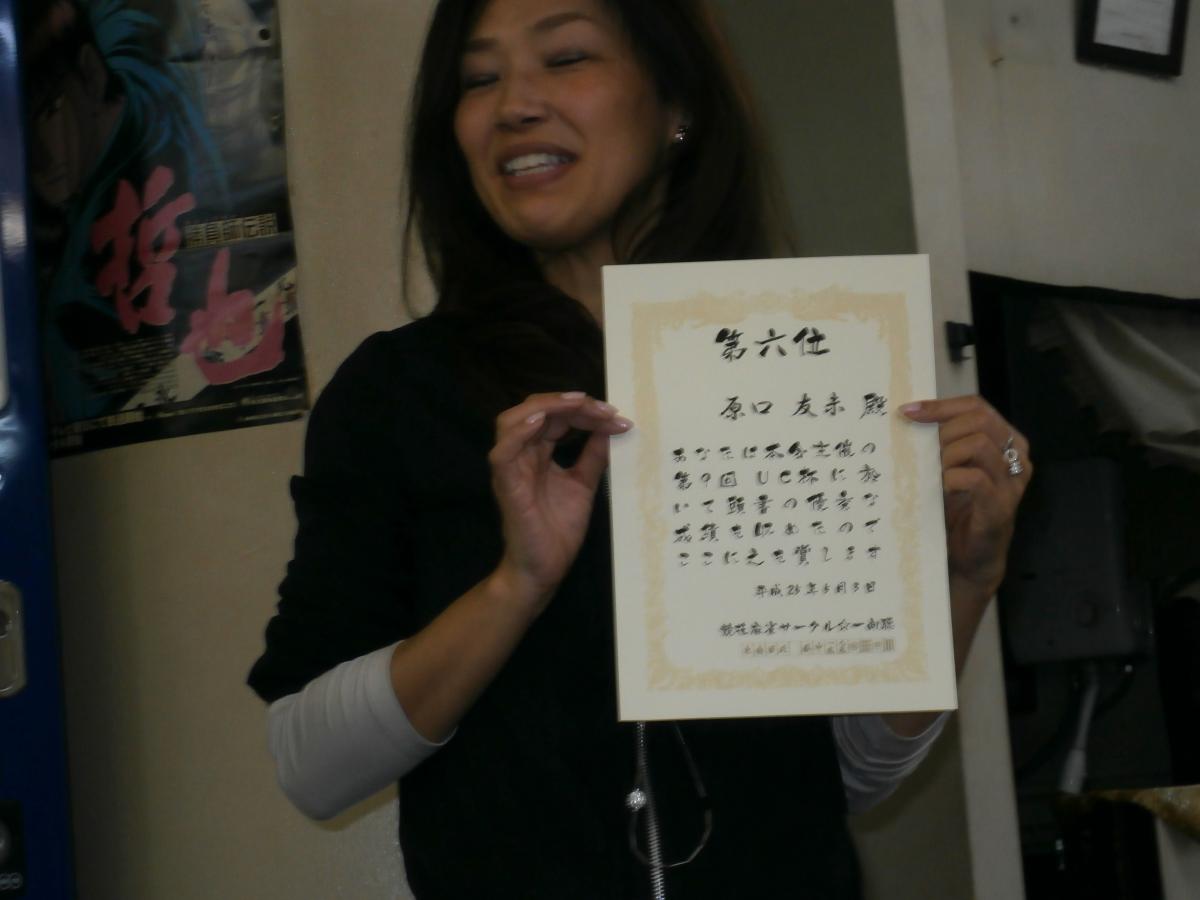 哲也
第六位
原口 友未 殿
あなたは本会主催の
第9回 UC杯に於
いて頭書の優秀な
成績を収めたので
ここに之を賞します
平成25年5月3日
競技麻雀サークル